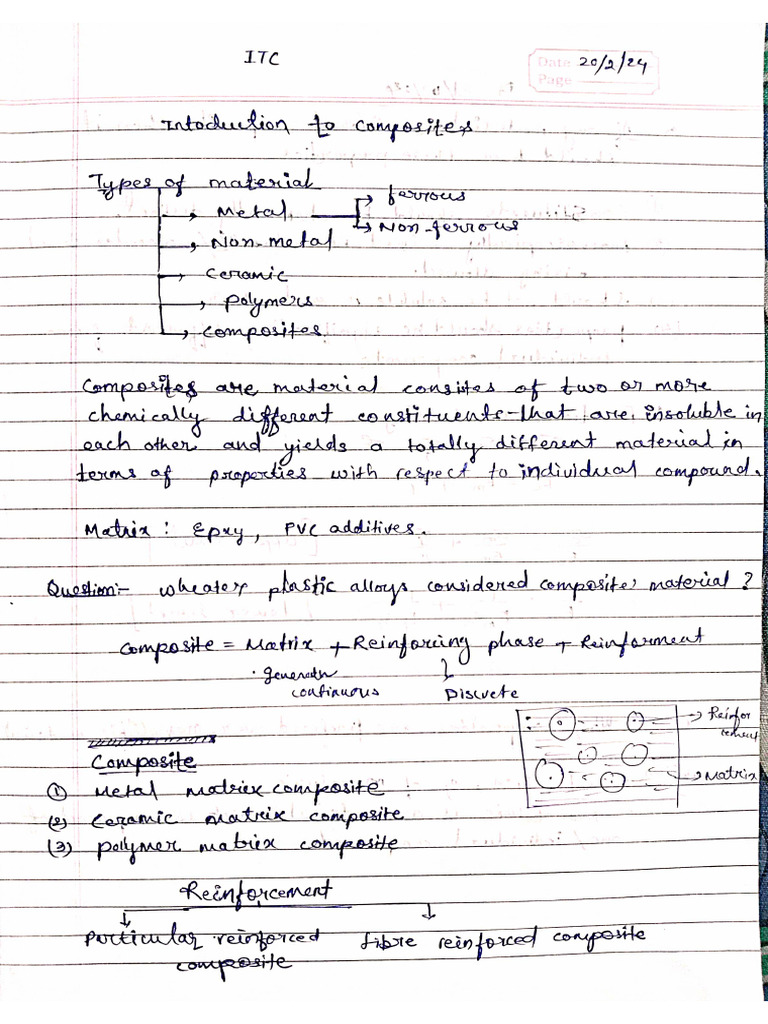 ITC
Date 20/2/24
Page
Intoduction to composites
Types of material
→ Metal → ferrous
→ Non-ferrous
→ Non-metal
→ ceramic
→ polymers
→ composites
Composites are material consites of two or more
chemically different constituents that are insoluble in
each other and yields a totally different material in
terms of properties with respect to individual compound.
Matrix : Epxy, PVC additives.
Question:- wheater plastic alloys considered composites material?
Composite = Matrix + Reinforcing phase + Reinforment
continuous Discrete
Reinfor
cement
Matrix
Composite
(1) Metal matrix composite
(2) Ceramic matrix composite
(3) polymer matrix composite
Reinforcement
Particular reinforced fibre reinforced composite
composite